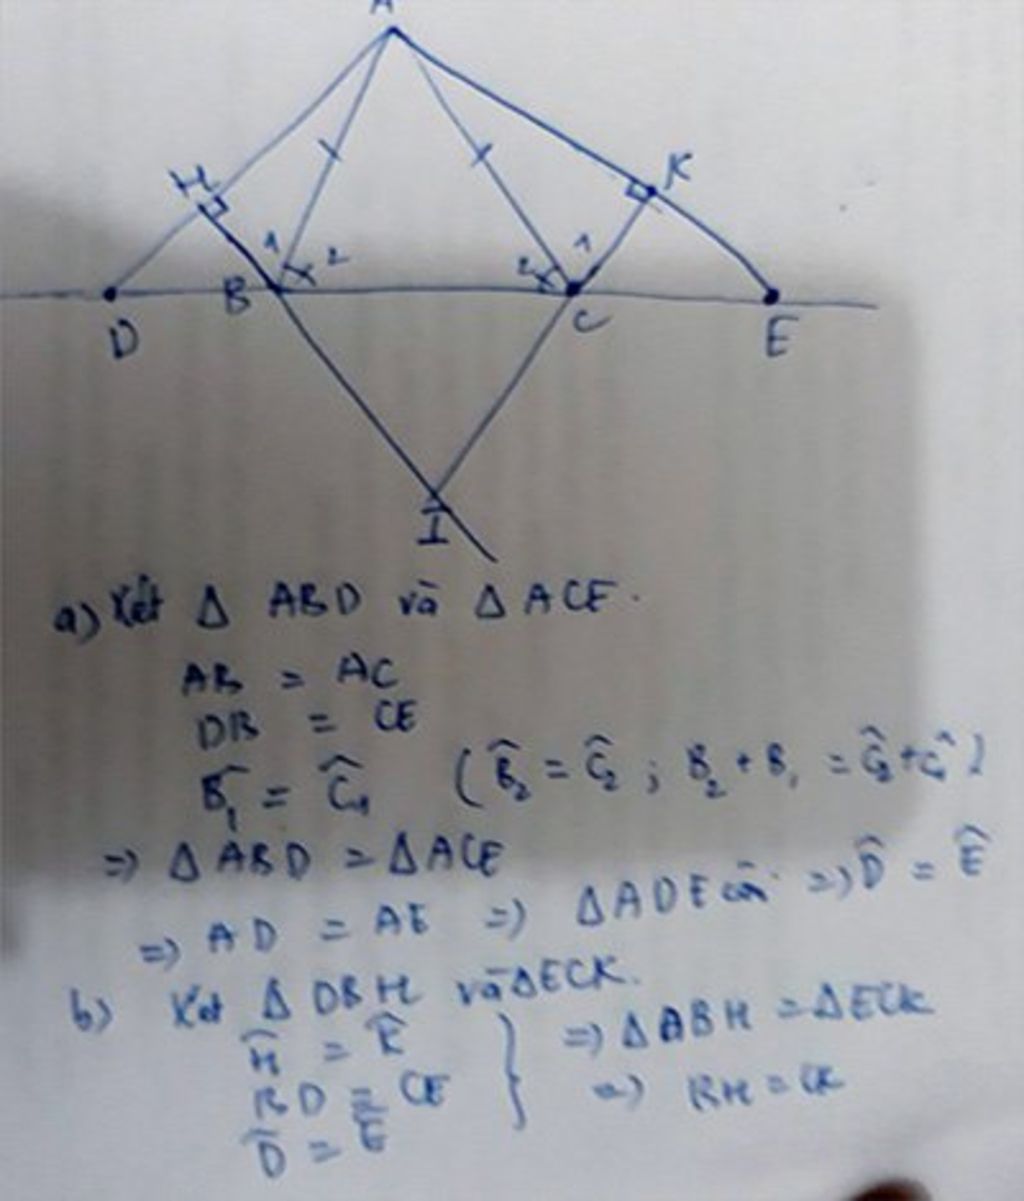 A
H
K
1
2
2
1
B
C
D
E
I
a) Xét Δ ABD và Δ ACE.
AB = AC
DB = CE
B̂₁ = Ĉ₁ (B̂₂ = Ĉ₂ ; B₂ + B₁ = Ĉ₂ + Ĉ₁)
=> Δ ABD = Δ ACE
=> AD = AE => Δ ADE cân => D̂ = Ê
b) Xét Δ DBH và Δ ECK.
Ĥ = K̂
BD = CE
D̂ = Ê
=> Δ ABH = Δ ECK
=> BH = CK